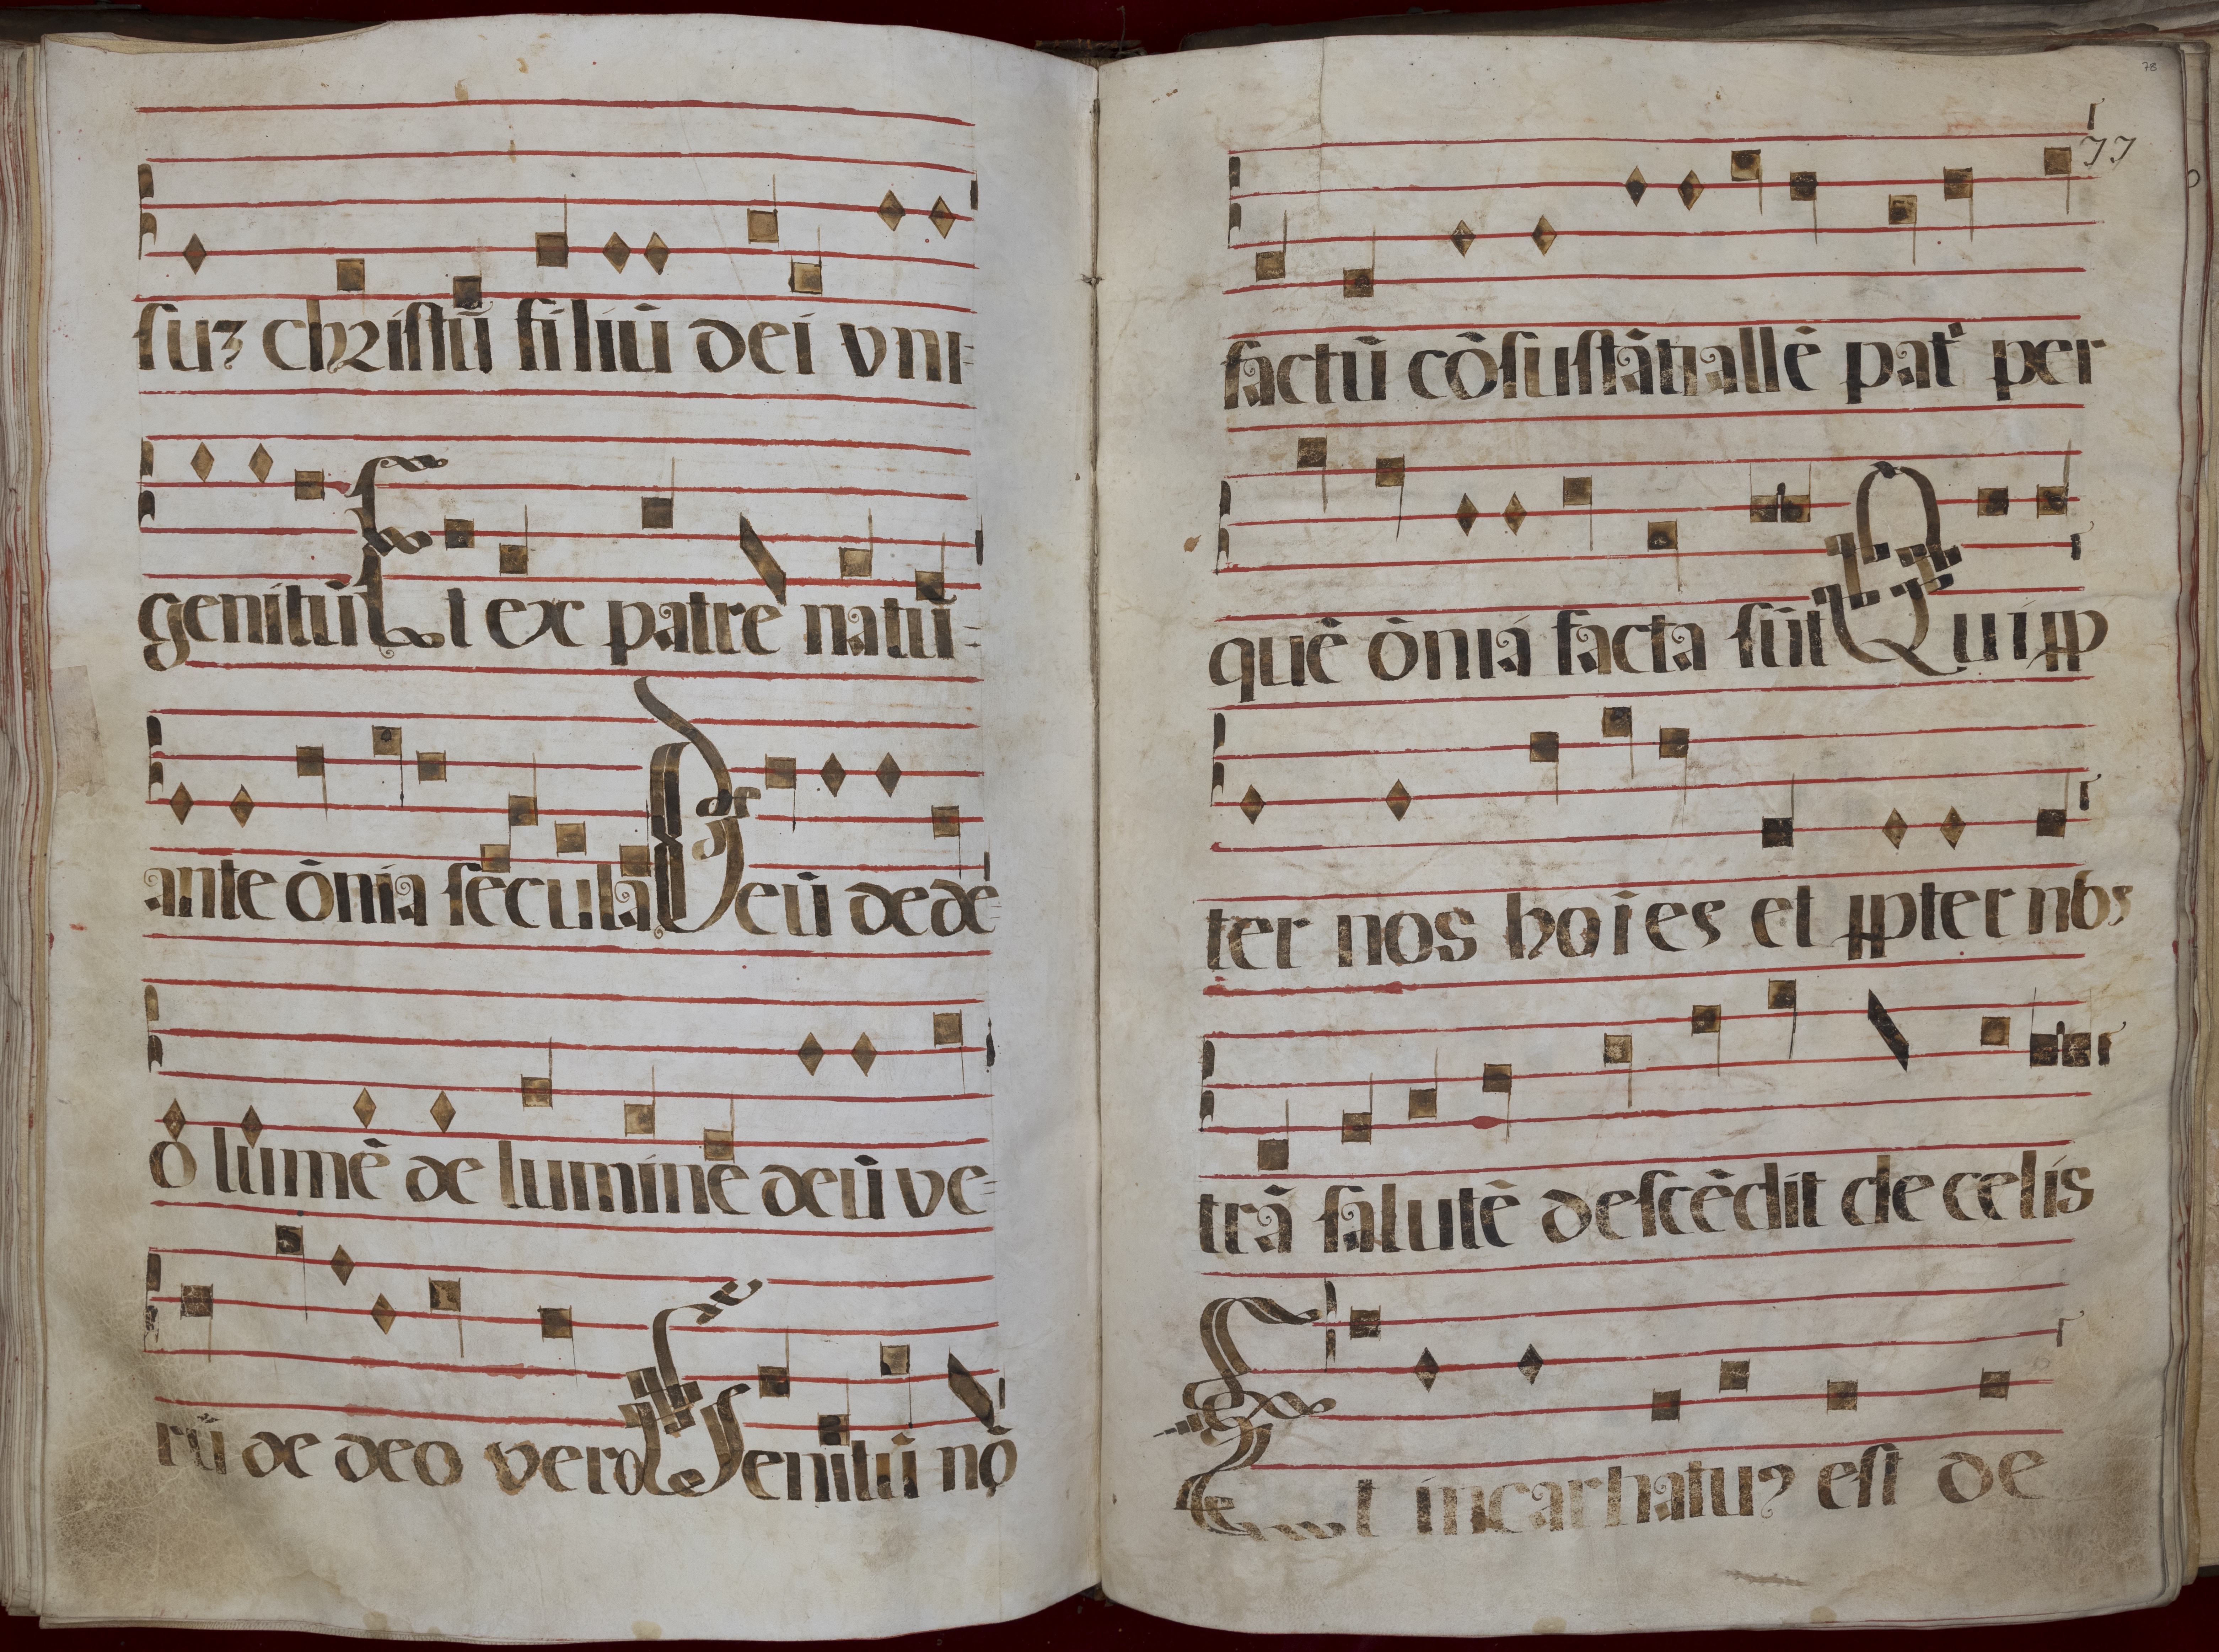 suꝫ christū filiū dei vni=
genitū Et ex patrē natū=
ante ōnia secula Deū de dē=
o lumē de lumine deū ve=
rū de deo vero Genitū nō
78
77
factū cōsustātiallē pat' per
quē ōnia facta sūt Quipp
ter nos hoies et ppter nos
trā salutē descēdit de celis
Et incarnatuꝰ est de